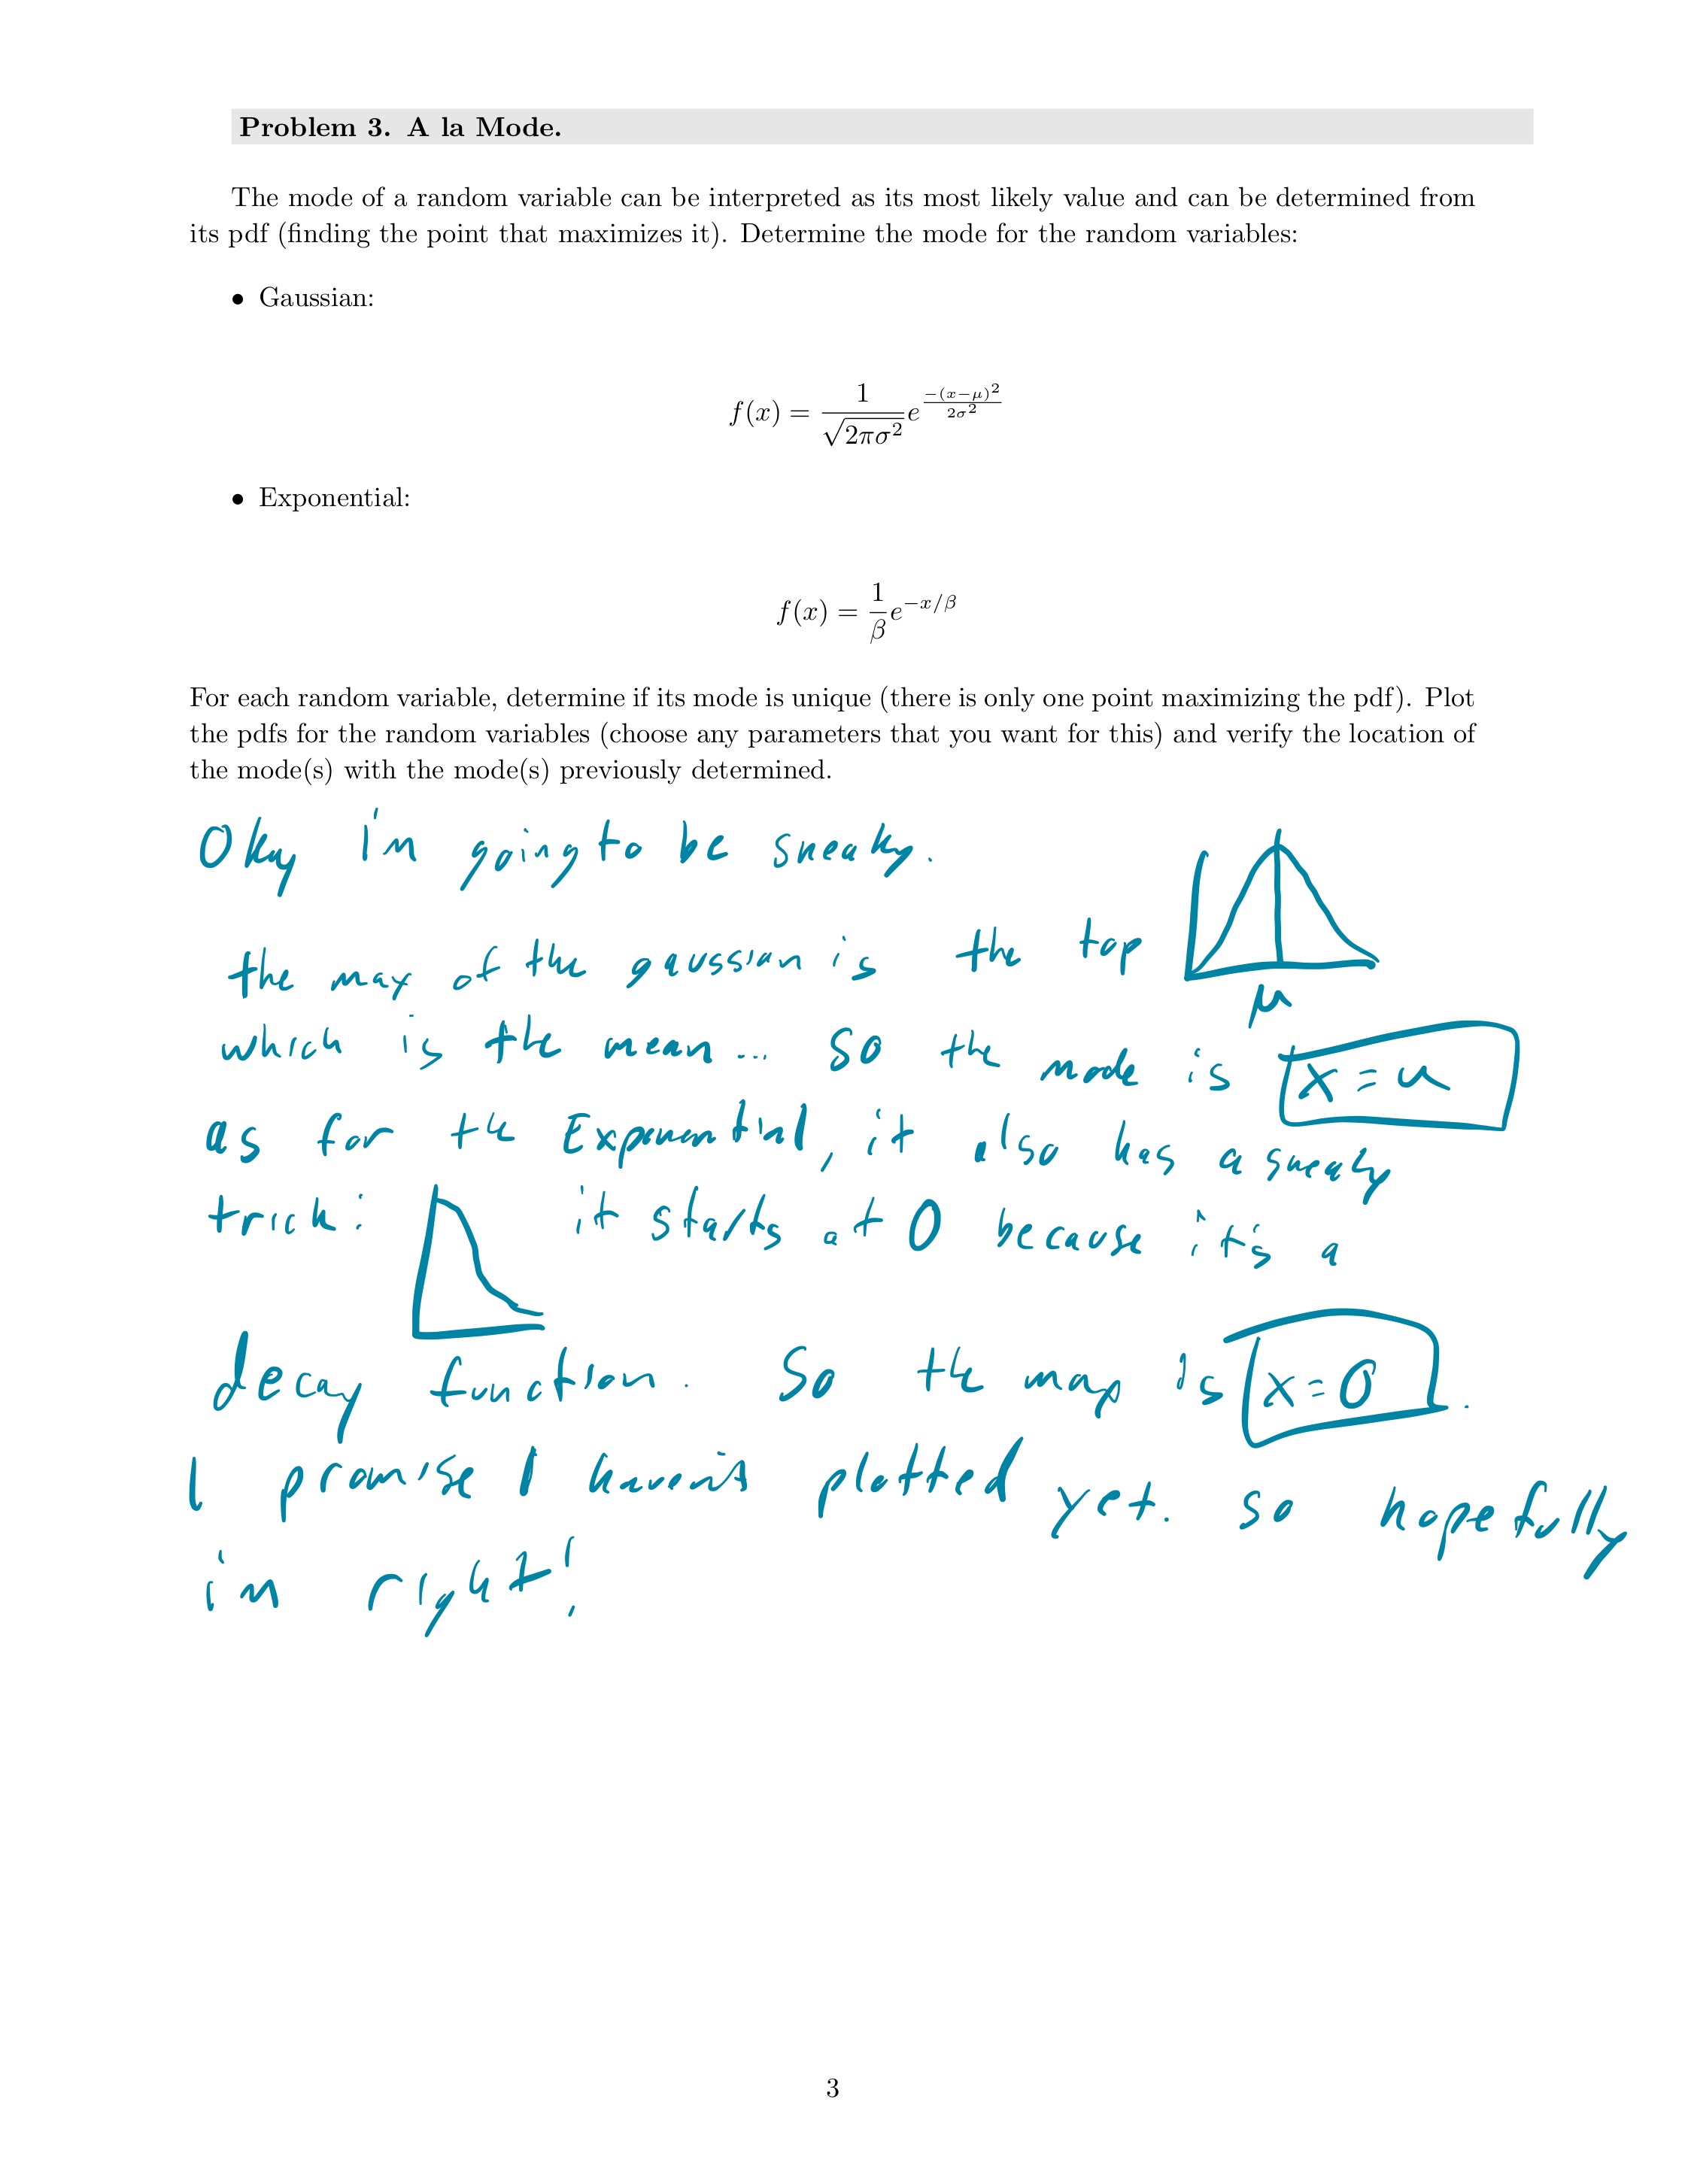 Problem 3. A la Mode.
The mode of a random variable can be interpreted as its most likely value and can be determined from
its pdf (finding the point that maximizes it). Determine the mode for the random variables:
• Gaussian:
f(x) = 1/√(2πσ²) e^(−(x−μ)²/2σ²)
• Exponential:
f(x) = 1/β e^(−x/β)
For each random variable, determine if its mode is unique (there is only one point maximizing the pdf). Plot
the pdfs for the random variables (choose any parameters that you want for this) and verify the location of
the mode(s) with the mode(s) previously determined.
Okay i'm going to be sneaky.
the max of the gaussian is the top
μ
which is the mean... so the mode is x = u
as for the Exponential, it also has a sneaky
trick: it starts at 0 because it's a
decay function. So the max is x=0.
I promise I haven't plotted yet. so hopefully
im right!
3